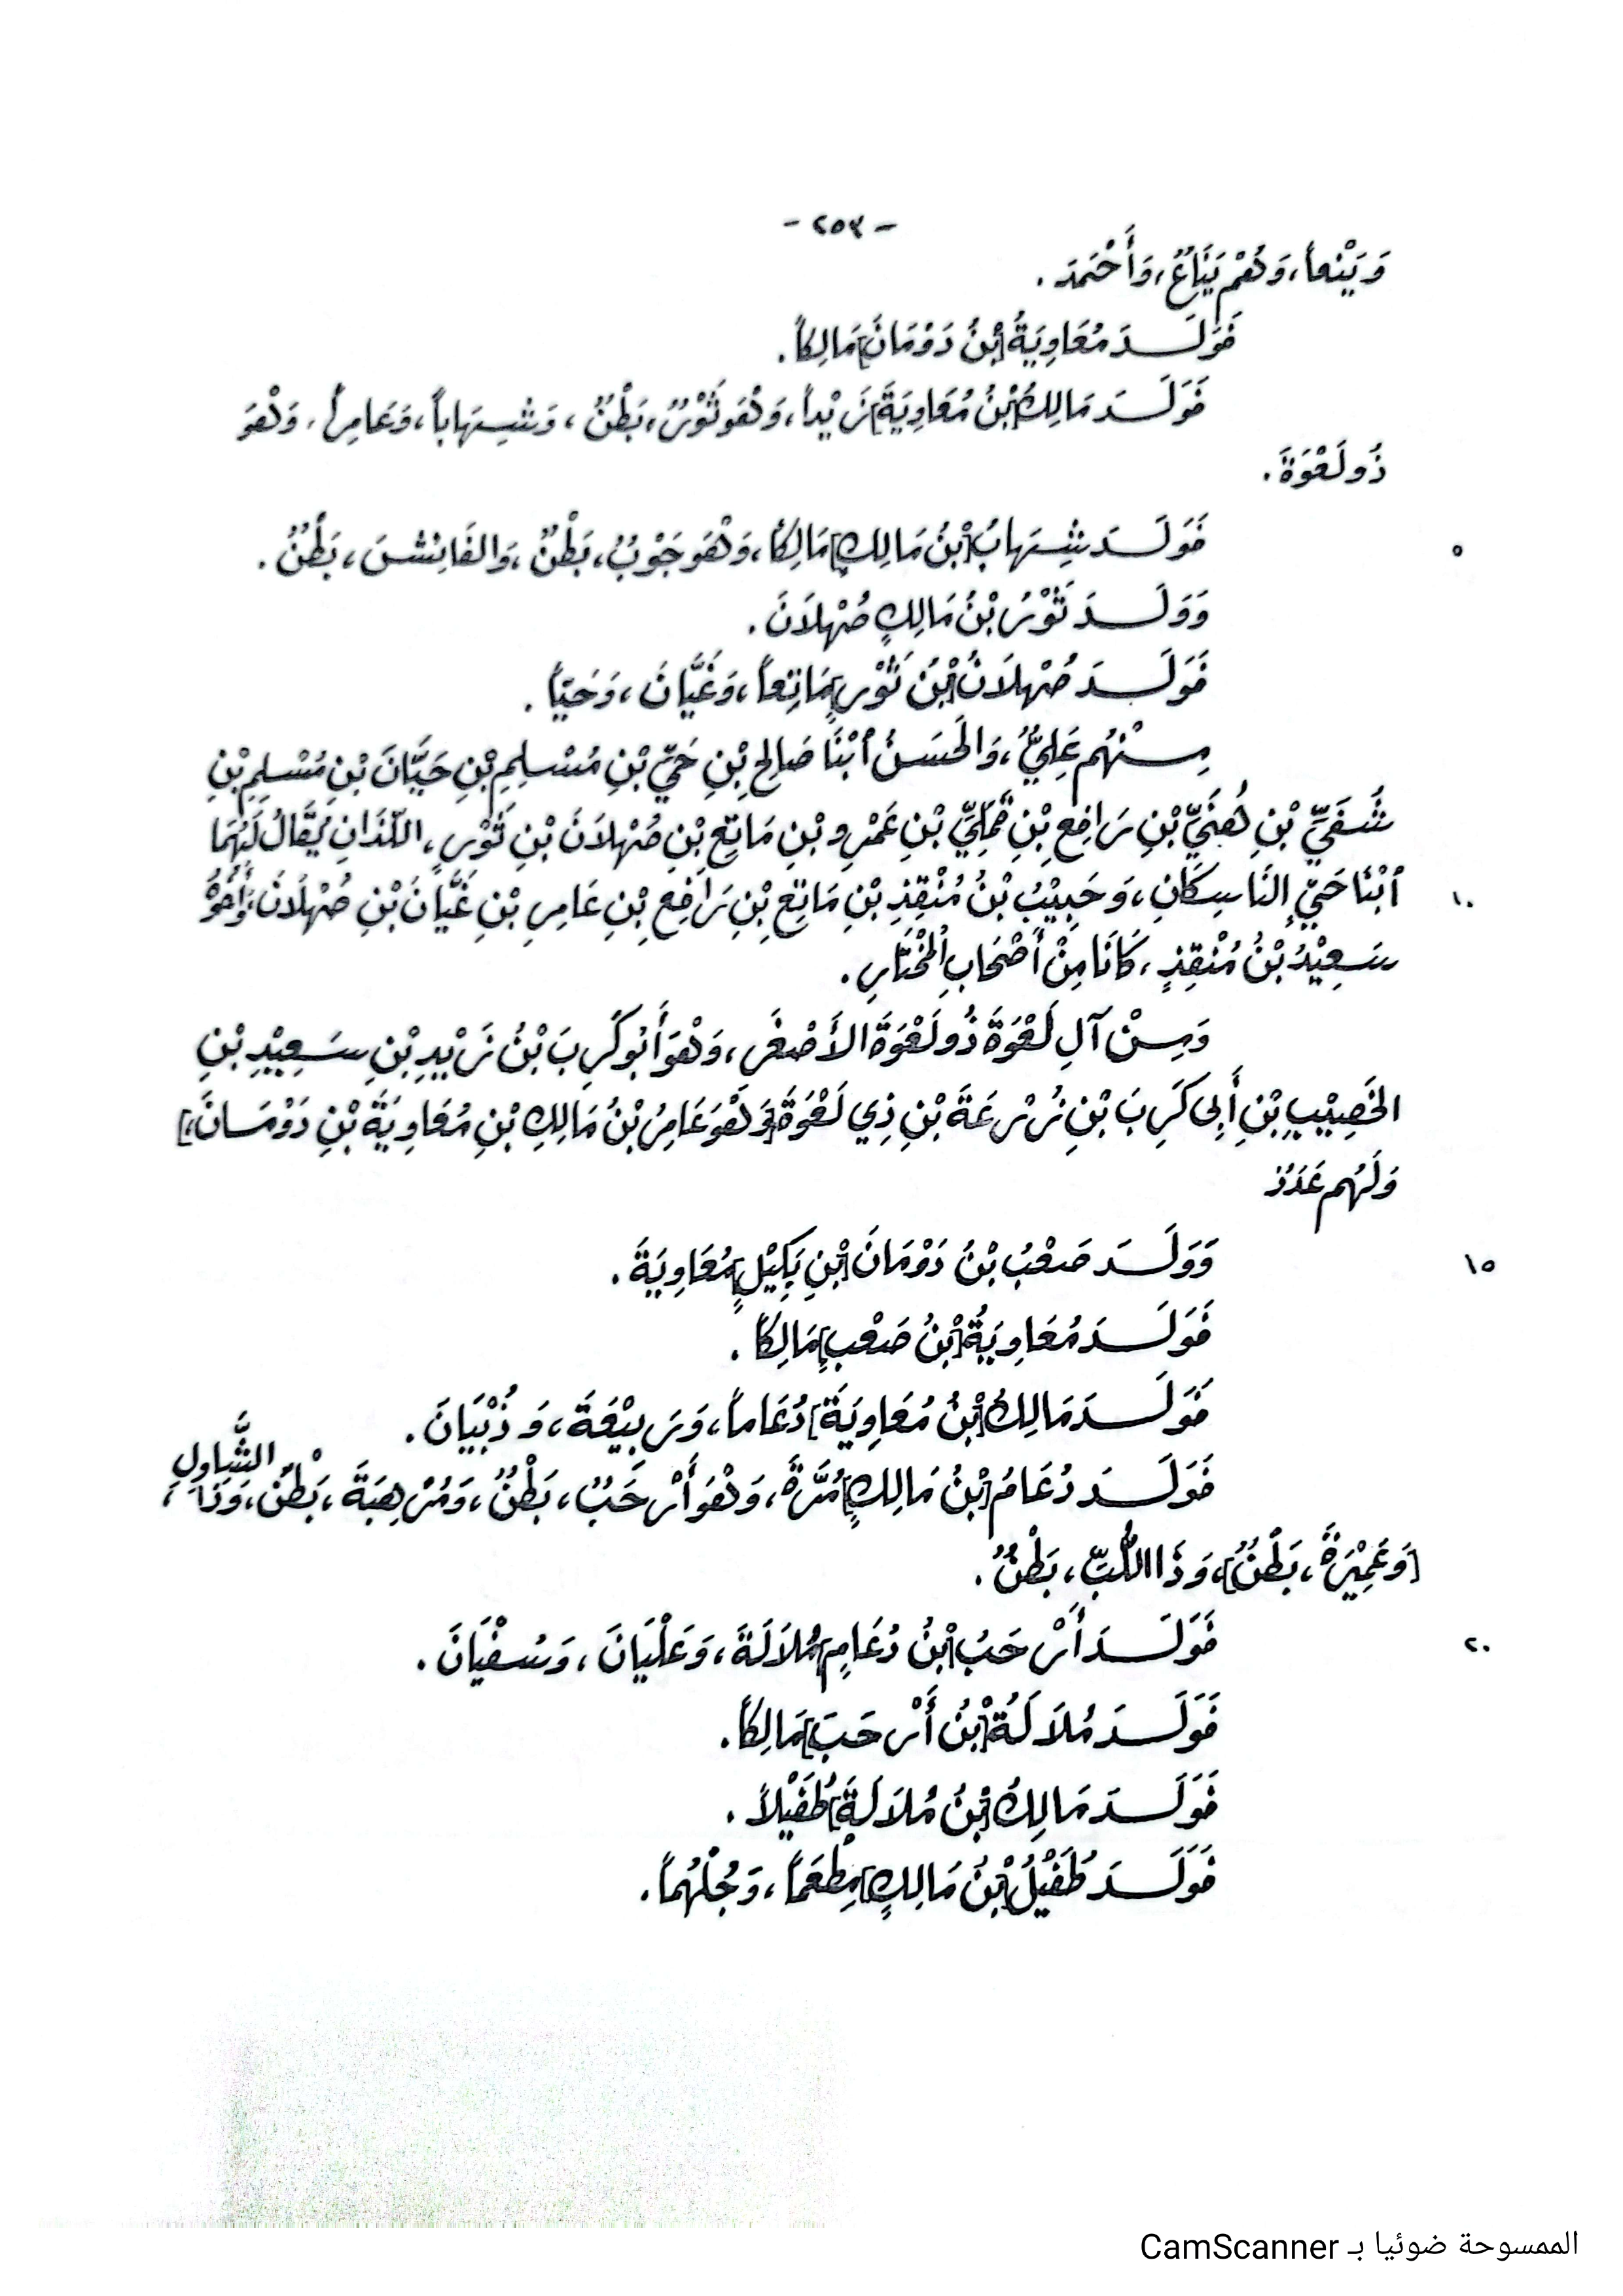 - ٢٥٣ -
وَيَنْعاً، وَهُمْ يَنَاعٌ، وَأَحْمَدَ .
فَوَلَـــدَ مُعَاوِيَةُ [بْنُ دَوْمَانَ] مَالِكاً.
فَوَلَـــدَ مَالِكُ [بْنُ مُعَاوِيَةَ] زَيْداً، وَهْوَ ثَوْرٌ، بَطْنٌ، وَشِهَاباً، وَعَامِراً، وَهْوَ
ذُو لَعْوَةَ .
٥ فَوَلَـــدَ شِهَابُ [بْنُ مَالِكٍ] مَالِكاً، وَهْوَ جَوْبٌ، بَطْنٌ، وَالفَائِشَ، بَطْنٌ .
وَوَلَـــدَ ثَوْرُ بْنُ مَالِكٍ صُهْلَانَ .
فَوَلَـــدَ صُهْلَانُ [بْنُ ثَوْرٍ] مَاتِعاً، وَغَيَّانَ، وَحَيّاً .
مِــنْهُم عَلِيٌّ، وَالحَسَنُ ٱبْنَا صَالِحِ بْنِ حَيِّ بْنِ مُسْلِمِ بْنِ حَيَّانَ بْنِ مُسْلِمِ بْنِ
شُفَيِّ بْنِ هُنَيِّ بْنِ رَافِعِ بْنِ قَمْلِيِّ بْنِ عَمْرِو بْنِ مَاتِعِ بْنِ صُهْلَانَ بْنِ ثَوْرٍ، اللَّذَانِ يُقَالُ لَهُمَا
١٠ ٱبْنَا حَيٍّ النَّاسِكَانِ، وَحَبِيْبُ بْنُ مُنْقِذِ بْنِ مَاتِعِ بْنِ رَافِعِ بْنِ عَامِرِ بْنِ غَيَّانَ بْنِ صُهْلَانَ، وَأَخُوْهُ
سَعِيْدُ بْنُ مُنْقِذٍ، كَانَا مِنْ أَصْحَابِ الْمُخْتَارِ .
وَمِــنْ آلِ لَعْوَةَ ذُو لَعْوَةَ الأَصْغَر، وَهْوَ أَبُو كَرِبَ بْنُ زَيْدِ بْنِ سَعِيْدِ بْنِ
الخَصِيْبِ بْنِ أَبِي كَرِبَ بْنِ زُرْعَةَ بْنِ ذِي لَعْوَةَ [وَهْوَ عَامِرُ بْنُ مَالِكِ بْنِ مُعَاوِيَةَ بْنِ دَوْمَانَ،]
وَلَهُم عَدَدٌ
١٥ وَوَلَـــدَ صَعْبُ بْنُ دَوْمَانَ [بْنِ بَكِيْلٍ] مُعَاوِيَةَ .
فَوَلَـــدَ مُعَاوِيَةُ [بْنُ صَعْبٍ] مَالِكاً .
فَوَلَـــدَ مَالِكُ [بْنُ مُعَاوِيَةَ] دُعَاماً، وَرَبِيْعَةَ، وَذُبْيَانَ .
فَوَلَـــدَ دُعَامُ [بْنُ مَالِكٍ] مُرَّةَ، وَهْوَ أَرْحَبُ، بَطْنٌ، وَمُرْهِبَةَ، بَطْنٌ، وَذَا الشَّاوِلِ،
[وَعَمِيْرَةَ، بَطْنٌ]، وَذَا اللُّبِّ، بَطْنٌ .
٢٠ فَوَلَـــدَ أَرْحَبُ [بْنُ دُعَامٍ] مُلَالَةَ، وَعَلْيَانَ، وَسُفْيَانَ .
فَوَلَـــدَ مُلَالَةُ [بْنُ أَرْحَبَ] مَالِكاً .
فَوَلَـــدَ مَالِكُ [بْنُ مُلَالَةَ] طُفَيْلاً .
فَوَلَـــدَ طُفَيْلُ [بْنُ مَالِكٍ] مِطْعَماً، وَجُلْهُماً .
الممسوحة ضوئيا بـ CamScanner